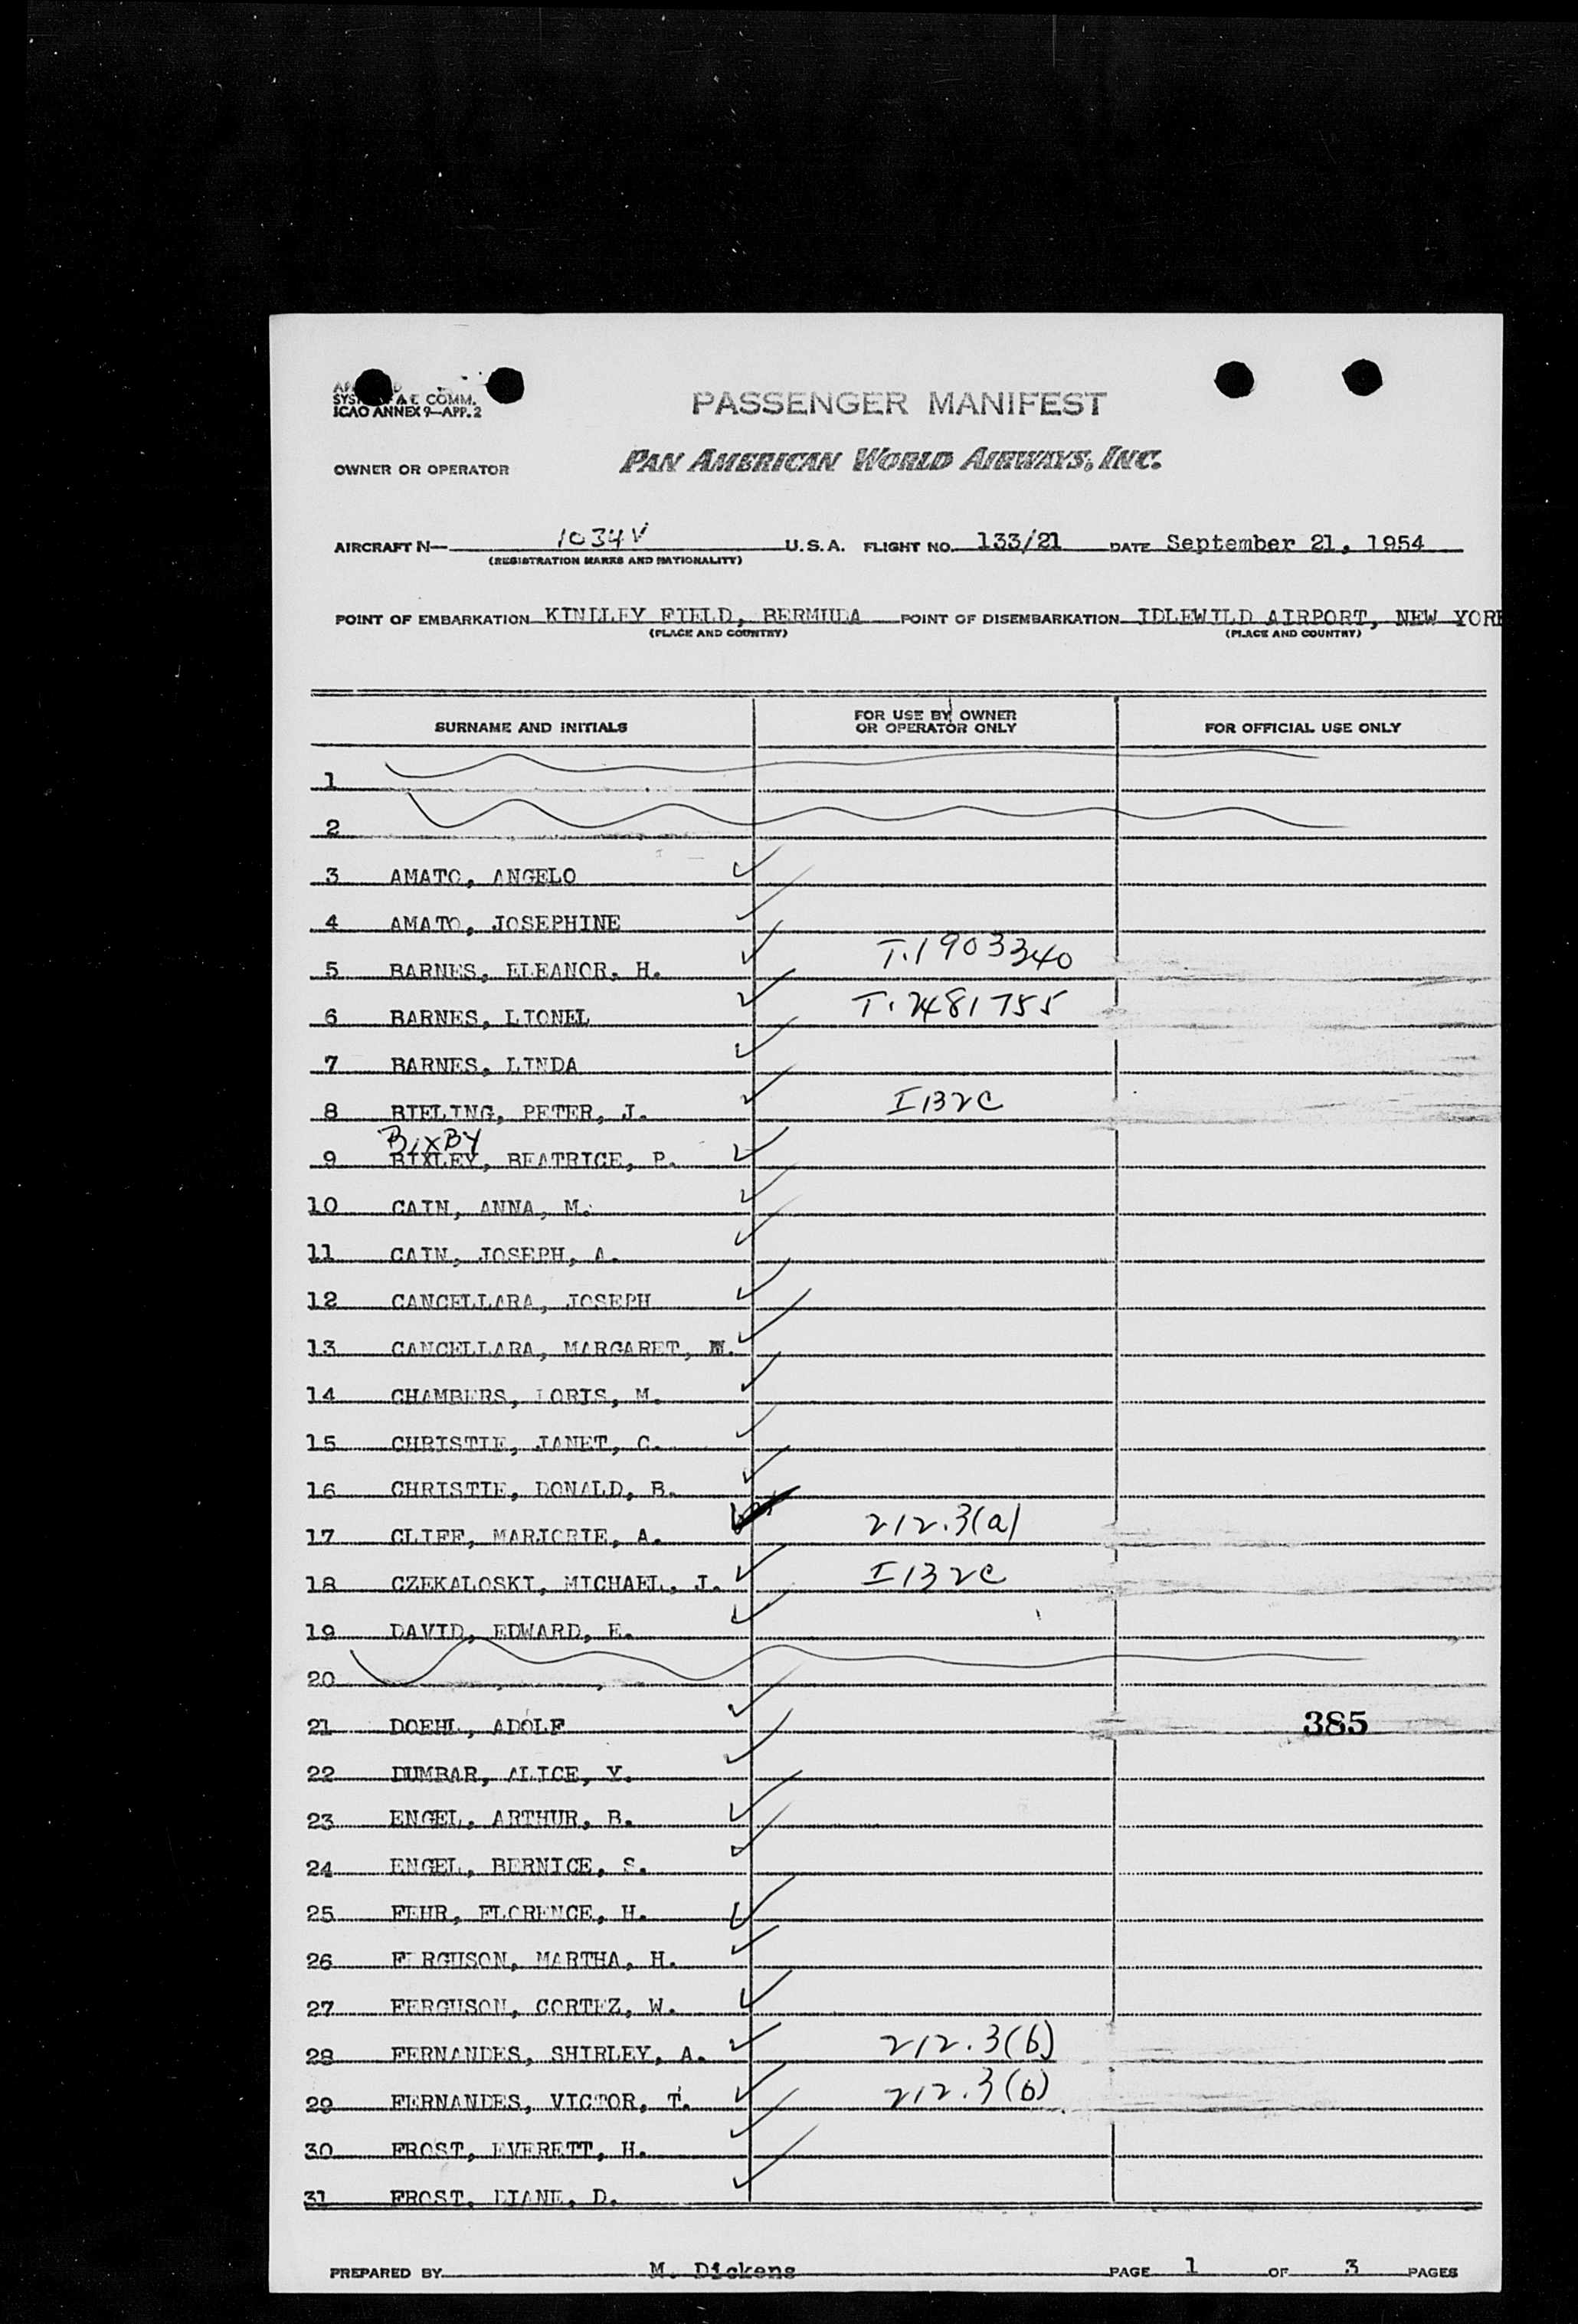 SYS & E COMM.
ICAO ANNEX 9—APP. 2
PASSENGER MANIFEST
OWNER OR OPERATOR PAN AMERICAN WORLD AIRWAYS, INC.
AIRCRAFT N— 1034V U.S.A. FLIGHT NO. 133/21 DATE September 21, 1954
(REGISTRATION MARKS AND NATIONALITY)
POINT OF EMBARKATION KINDLEY FIELD, BERMUDA POINT OF DISEMBARKATION IDLEWILD AIRPORT, NEW YORK
(PLACE AND COUNTRY) (PLACE AND COUNTRY)
SURNAME AND INITIALS FOR USE BY OWNER OR OPERATOR ONLY FOR OFFICIAL USE ONLY
1
2
3 AMATO, ANGELO
4 AMATO, JOSEPHINE
5 BARNES, ELEANOR, H. T.1903340
6 BARNES, LIONEL T.2481755
7 BARNES, LINDA
8 BIELING, PETER, J. I132C
BIXBY
9 BIXLEY, BEATRICE, P.
10 CAIN, ANNA, M.
11 CAIN, JOSEPH, A.
12 CANCELLARA, JOSEPH
13 CANCELLARA, MARGARET,
14 CHAMBERS, LORIS, M.
15 CHRISTIE, JANET, C.
16 CHRISTIE, DONALD, B.
17 CLIFF, MARJORIE, A. 212.3(a)
18 CZEKALOSKI, MICHAEL, J. I132C
19 DAVID, EDWARD, E.
20
21 DOEHL, ADOLF 385
22 DUMBAR, ALICE, Y.
23 ENGEL, ARTHUR, B.
24 ENGEL, BERNICE, S.
25 FEHR, FLORENCE, H.
26 FERGUSON, MARTHA, H.
27 FERGUSON, CORTEZ, W.
28 FERNANDES, SHIRLEY, A. 212.3(b)
29 FERNANDES, VICTOR, T. 212.3(b)
30 FROST, EVERETT, H.
31 FROST, DIANE, D.
PREPARED BY M. Dickens PAGE 1 OF 3 PAGES